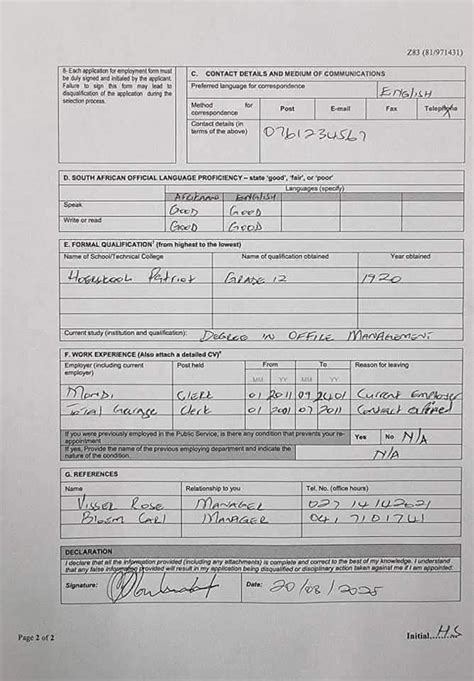 Z83 (81/971431)
8- Each application for employment form must be duly signed and initialed by the applicant. Failure to sign this form may lead to disqualification of the application during the selection process.
C. CONTACT DETAILS AND MEDIUM OF COMMUNICATIONS
Preferred language for correspondence English
Method for correspondence Post E-mail Fax Telephone
Contact details (in terms of the above) 0761234567
D. SOUTH AFRICAN OFFICIAL LANGUAGE PROFICIENCY – state 'good', 'fair', or 'poor'
Languages (specify)
Afrikaans English
Speak Good Good
Write or read Good Good
E. FORMAL QUALIFICATION¹ (from highest to the lowest)
Name of School/Technical College Name of qualification obtained Year obtained
Hoerskool Patriot Grade 12 1920
Current study (institution and qualification): Degree in Office Management
F. WORK EXPERIENCE (Also attach a detailed CV)
Employer (including current employer) Post held From To Reason for leaving
MM YY MM YY
Mondi Clerk 01 2011 09 2401 Current Employer
Total Garage Clerk 01 2001 07 2011 Contract expired
If you were previously employed in the Public Service, is there any condition that prevents your re-appointment Yes No N/A
If yes, Provide the name of the previous employing department and indicate the nature of the condition. N/A
G. REFERENCES
Name Relationship to you Tel. No. (office hours)
Visser Rose Manager 027 14142621
Blosm Carl Manager 041 7101741
DECLARATION
I declare that all the information provided (including any attachments) is complete and correct to the best of my knowledge. I understand that any false information provided will result in my application being disqualified or disciplinary action taken against me if I am appointed.
Signature: Date: 20/08/2025
Page 2 of 2
Initial......H.S